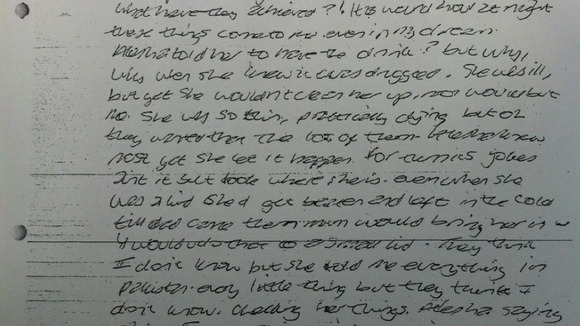 what have they achieved?! It is world how at night
these things come to me even in my dream.
told her to have the drink? but why,
why when she knew it was drugged. She was ill,
but yet she wouldn't clean her up, nor would but
no. She was so thin, practically dying but oh
they the lot of them.
most yet she let it happen. For turns jokes
aint it but look where she is. even when she
was a kid she'd get beaten and left in the cold
till dad came then mum would bring her in
would do that to a small kid. They think
I don't know but she told me everything in
pakistan. every little thing but they think I
don't know. Checking her things. saying